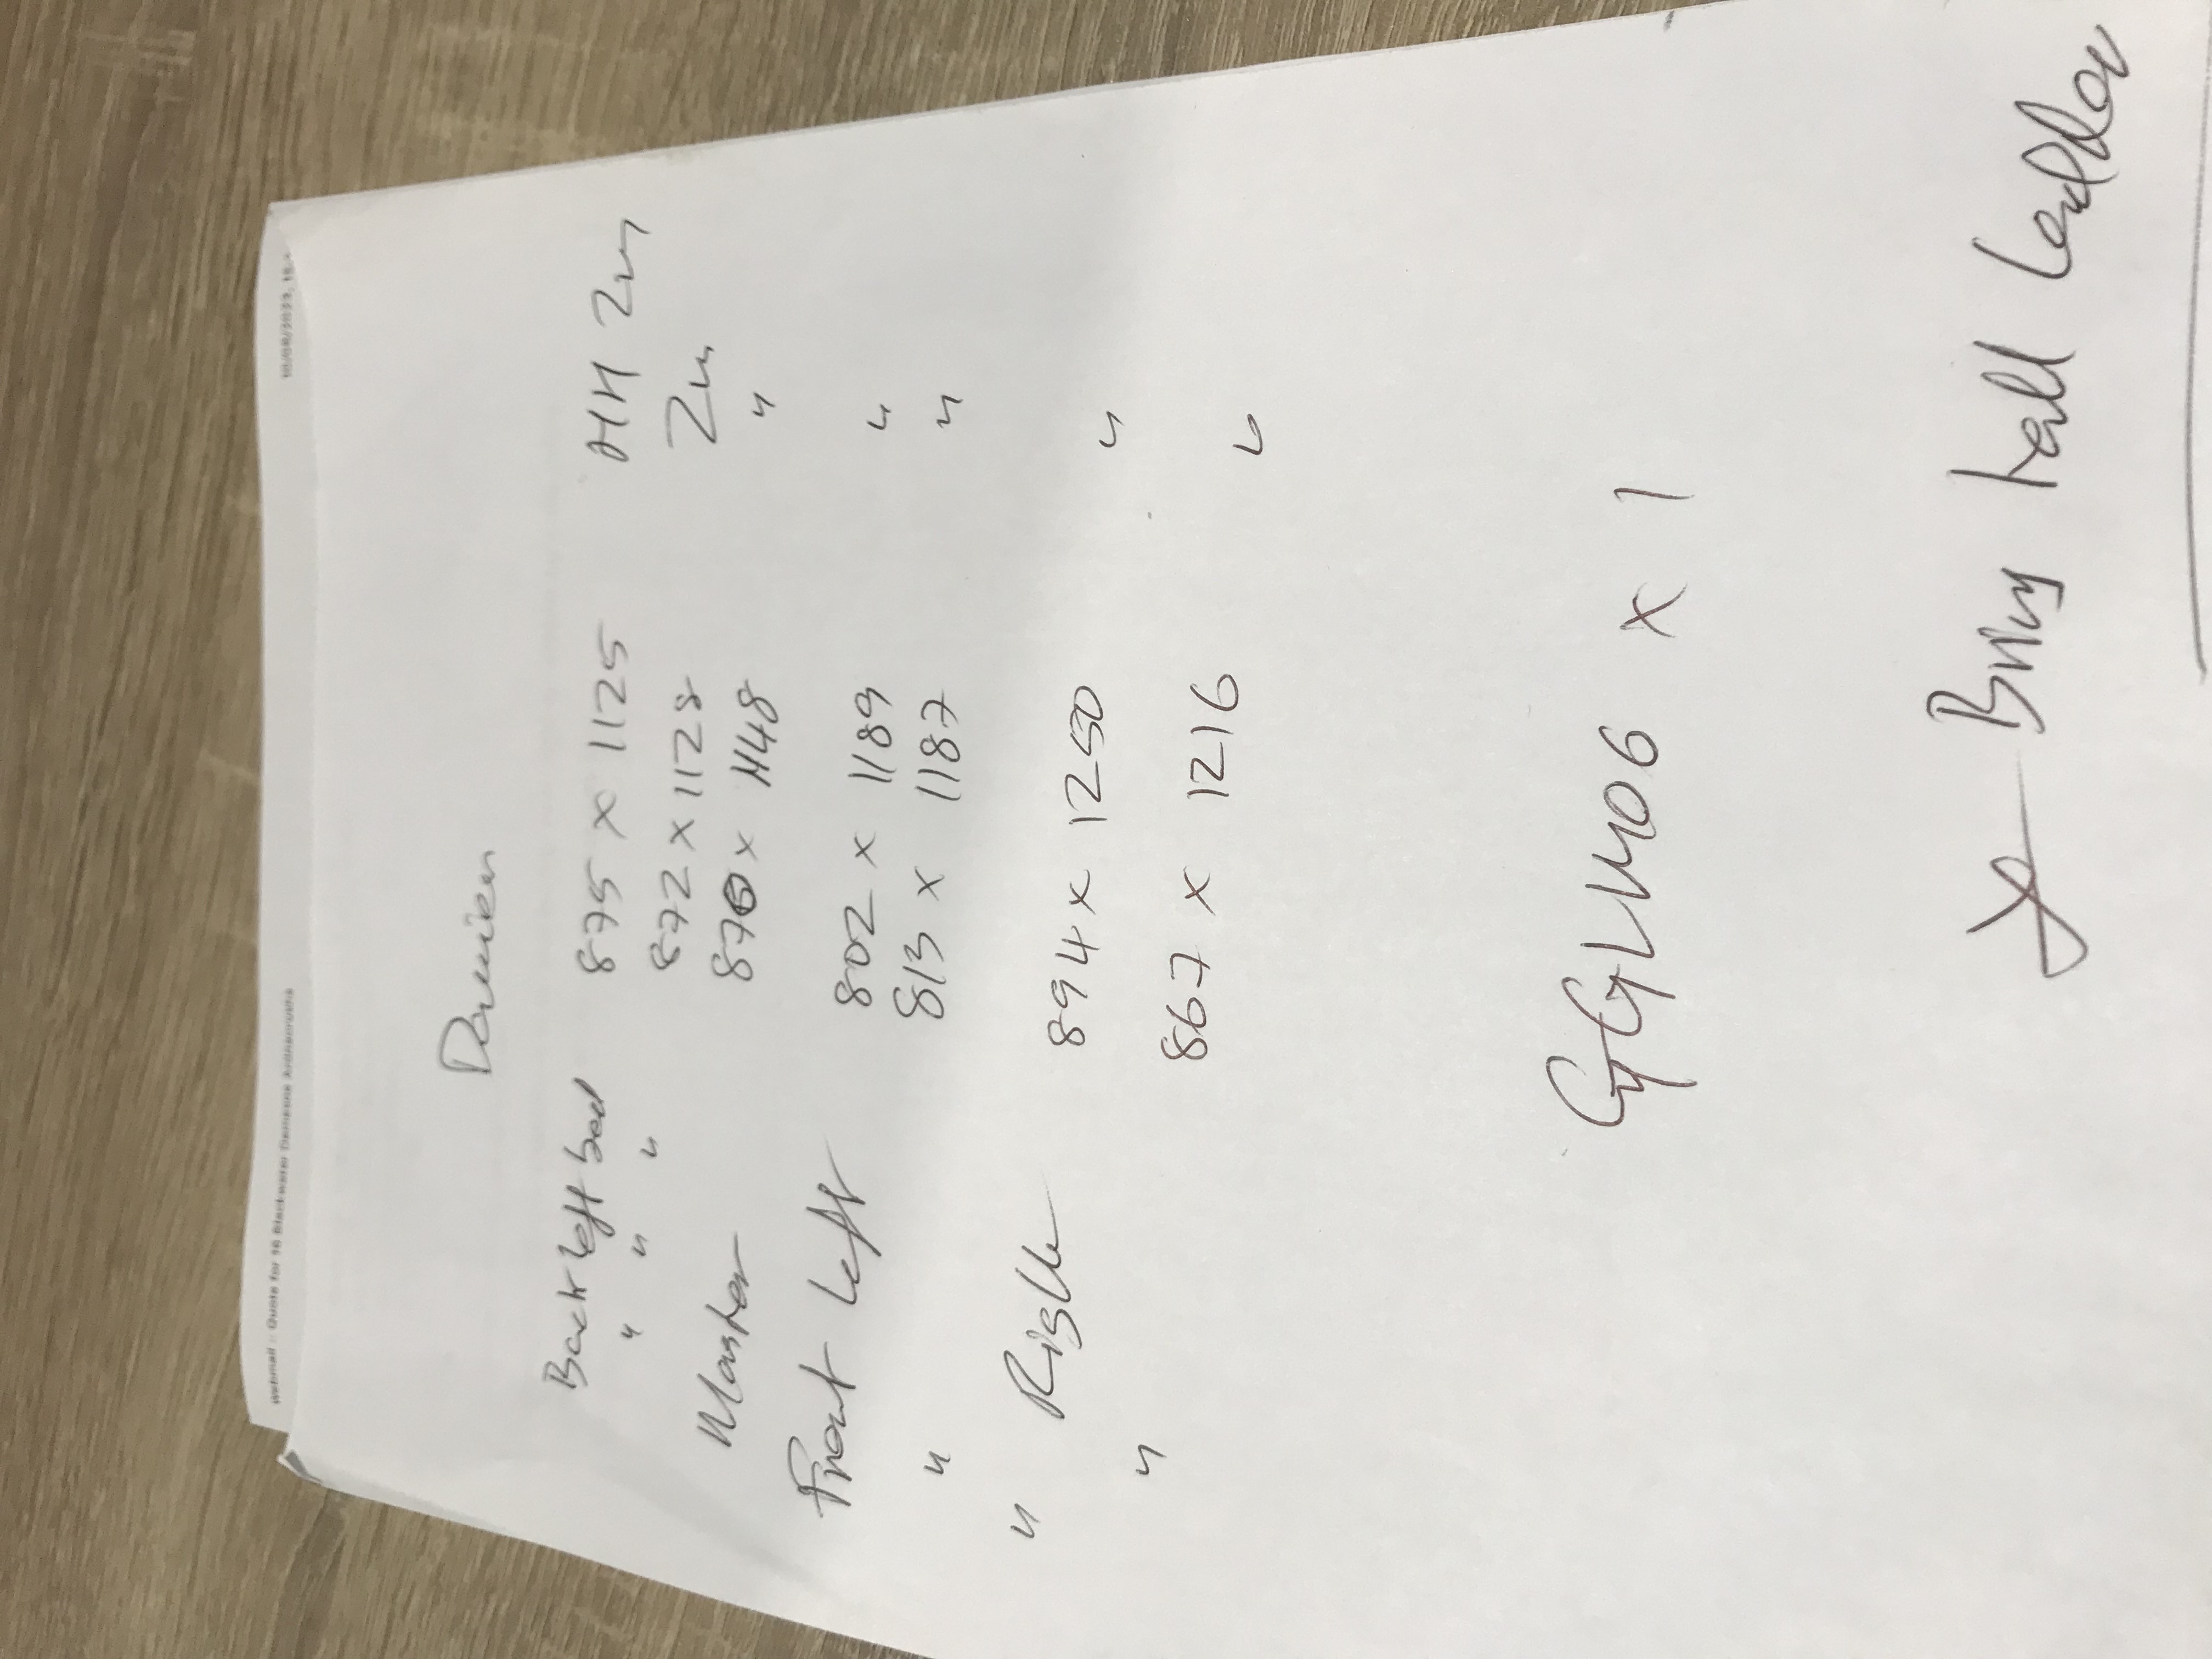 Webmail :: Quote for 16 Blackwater 10/08/2023, 15
Damien
Back left bed 875 x 1125 HH 2m
" " " 872 x 1128 2m
Master 870 x 1148 "
Front Left 802 x 1189 "
" 813 x 1187 "
" Right 894 x 1250 "
" 867 x 1216 "
x 1
Bring tall Ladder